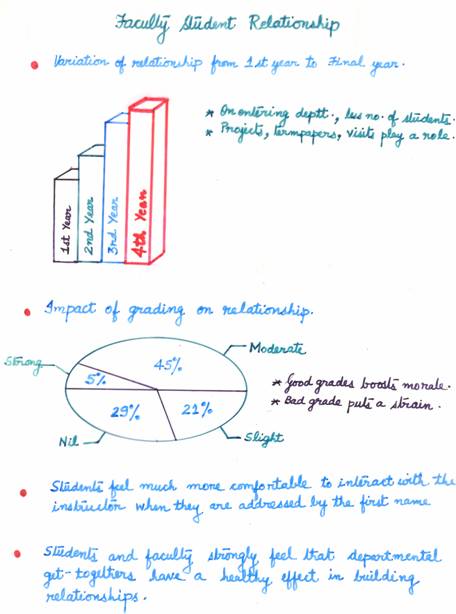 Faculty Student Relationship
Variation of relationship from 1st year to Final year.
* On entering deptt., less no. of students.
* Projects, termpapers, visits play a role.
1st Year
2nd Year
3rd Year
4th Year
Impact of grading on relationship.
Strong
45%
Moderate
5%
29%
21%
Nil
Slight
* Good grades boosts morale.
* Bad grade puts a strain.
Students feel much more comfortable to interact with the
instructor when they are addressed by the first name
Students and faculty strongly feel that departmental
get-togethers have a healthy effect in building
relationships.